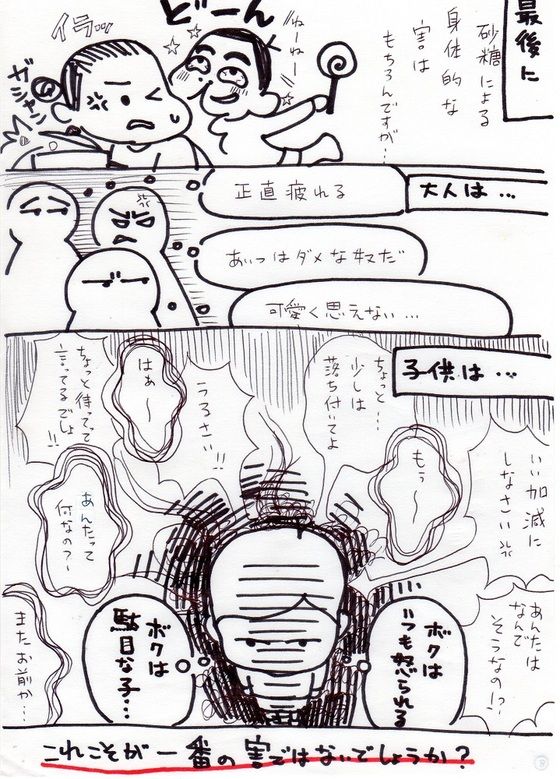 最後に
砂糖による
身体的な
害は
もちろんですが…
どーん
ねーねー
イラッ…
ガシャン
大人は…
正直疲れる
あいつはダメなヤツだ
可愛く思えない…
子供は…
いい加減に
しなさい
ちょっと…
少しは
落ち付いてよ
もぅ～
うるさい!!
はぁ～
ちょっと待ってて
言ってるでしょ!!
あんたって
何なの?～
あんたは
なんで
そうなの!?
ボクは
いつも怒られる
ボクは
駄目な子…
またお前か…
これこそが一番の害ではないでしょうか?